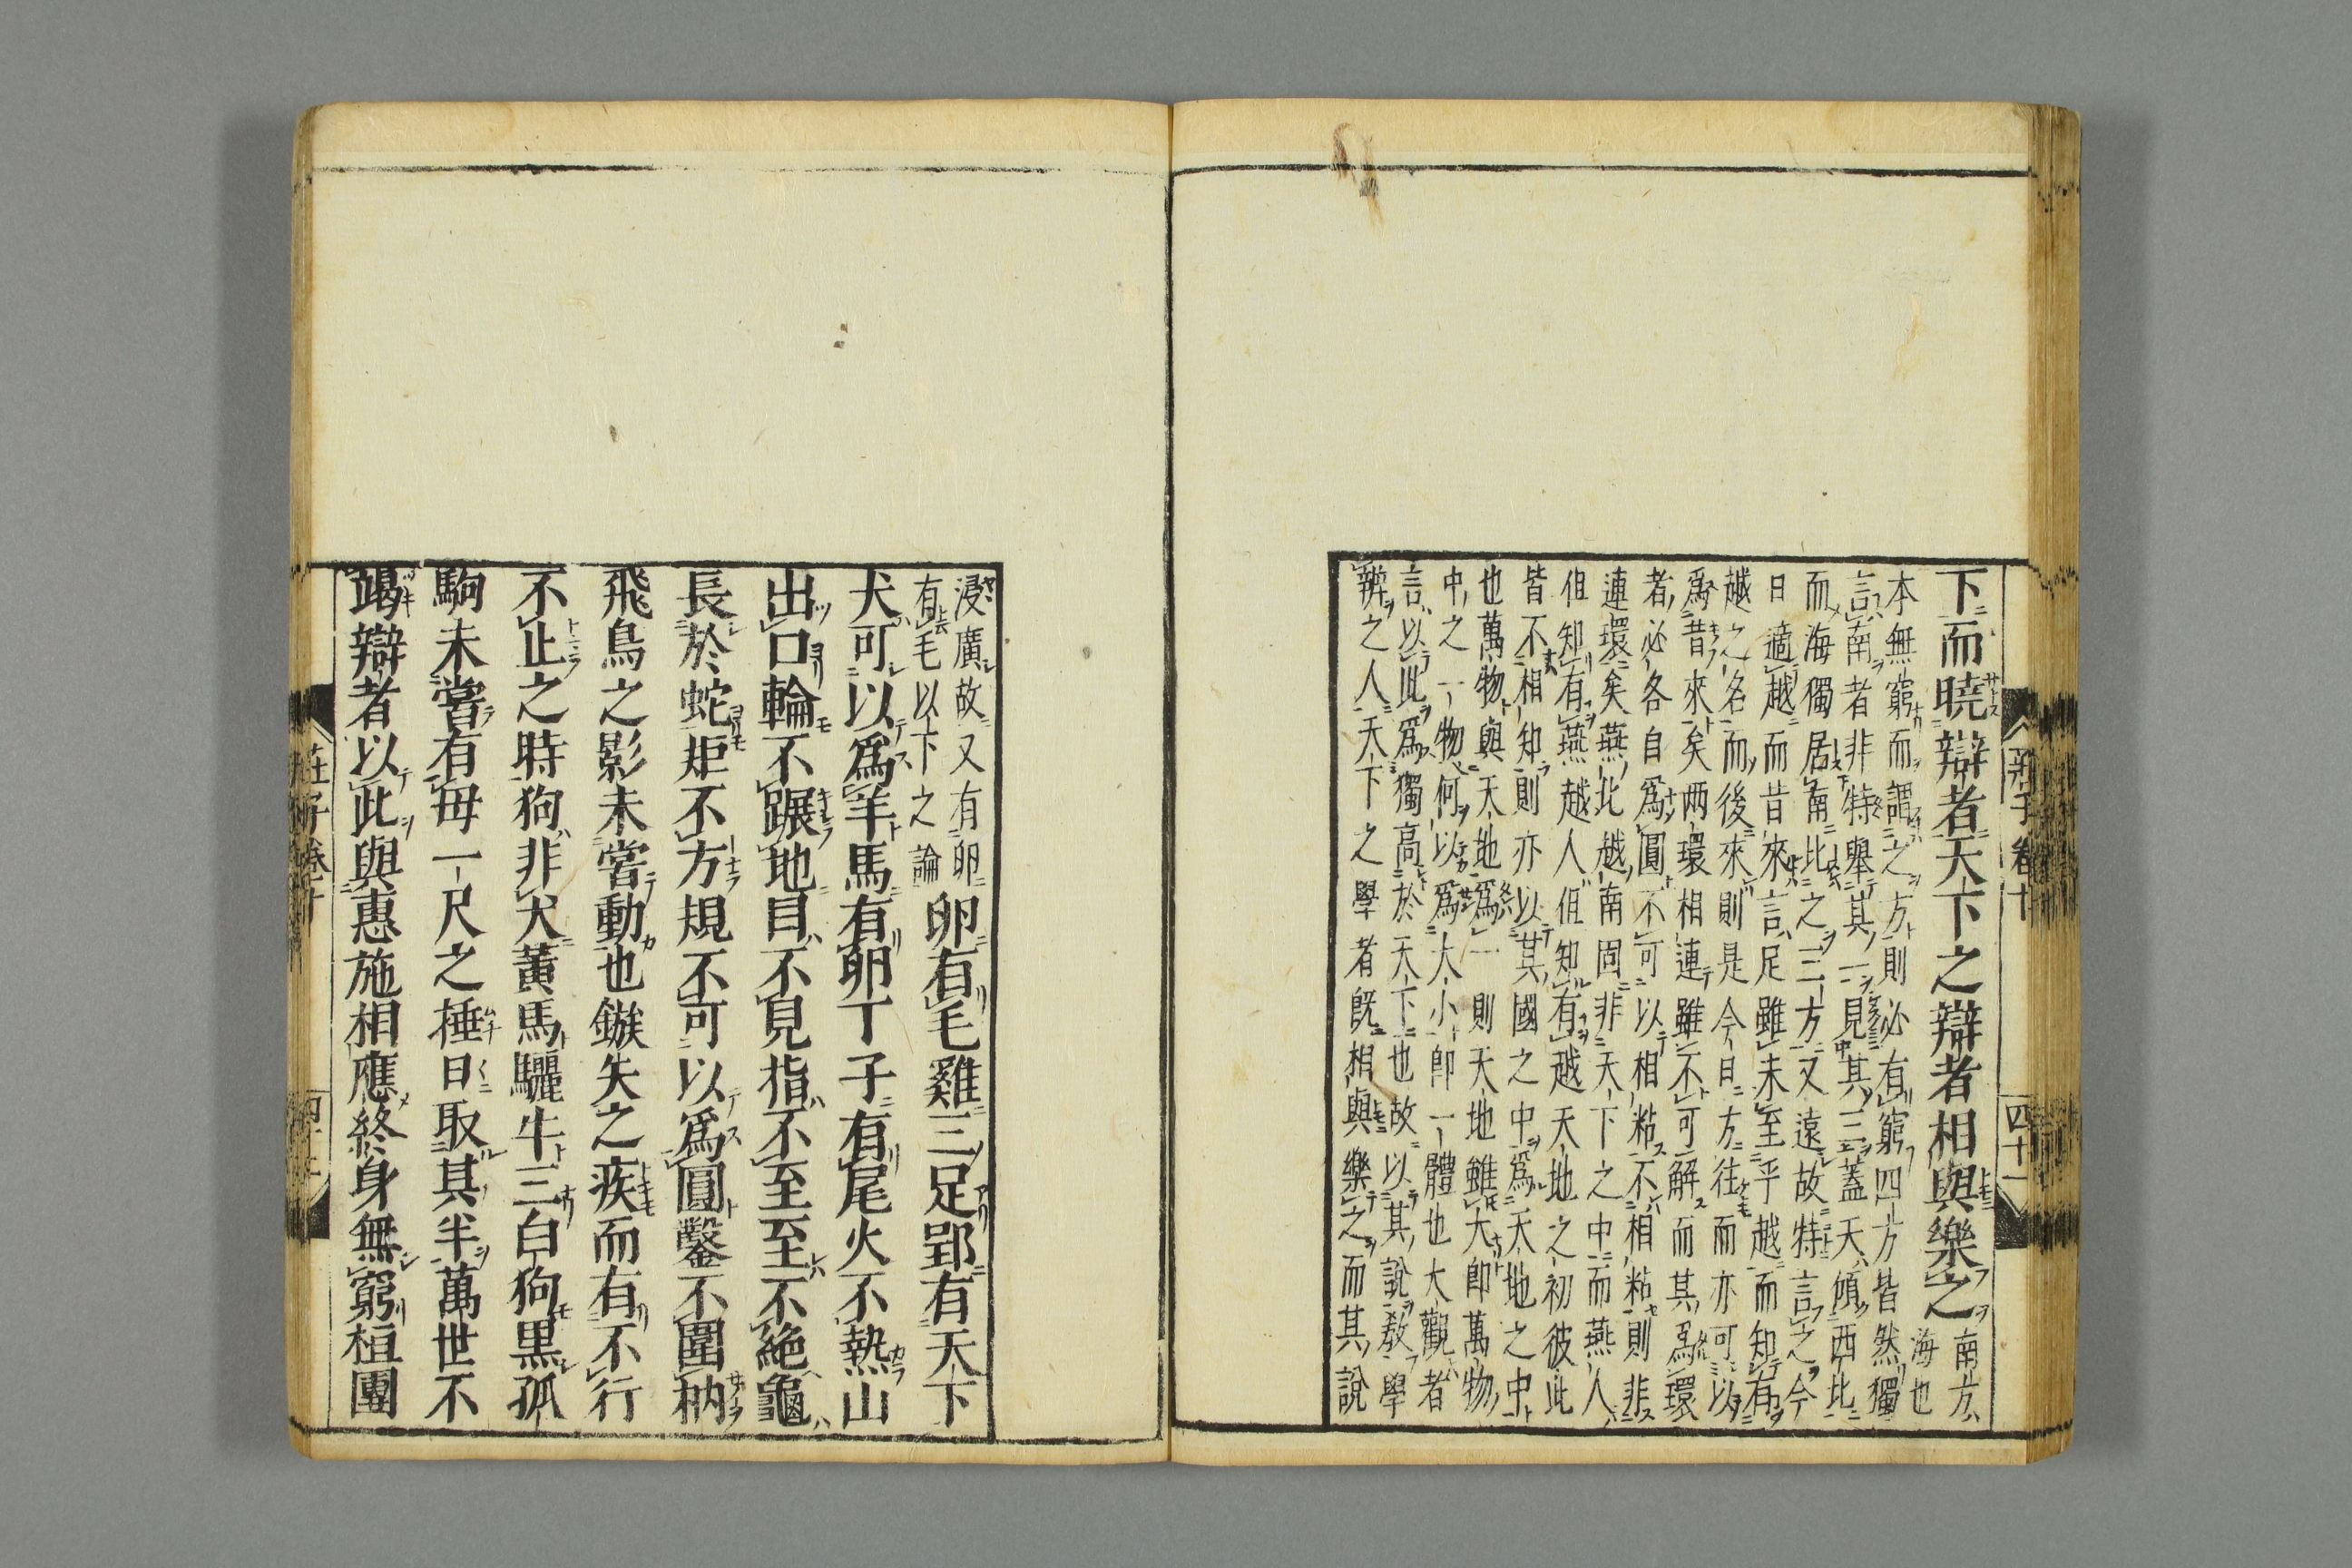 莊子卷十 四十一
下而曉辯者天下之辯者相與樂之南方
海也
本無窮而謂之方則必有窮四方皆然獨
言南者非特舉其一見其三蓋天傾西北
而海獨居南比之三方又遠故特言之今
日適越而昔來言足雖未至乎越而知有
越之名而後來則是今日方往而亦可以
爲昔來矣两環相連雖不可解而其爲環
者必各自爲圓不可以相粘不相粘則非
連環矣燕北越南固非天下之中而燕人
但知有燕越人但知有越天地之初彼此
皆不相知則亦以其國之中爲天地之中
也萬物與天地爲一則天地雖大即萬物
中之一物何以爲大小即一體也大觀者
言以此爲獨高於天下也故以其說教學
辨之人天下之學者既相與樂之而其說
浸廣故又有卵
有毛以下之論
卵有毛雞三足郢有天下
犬可以爲羊馬有卵丁子有尾火不熱山
出口輪不蹍地目不見指不至至不絶龜
長於蛇矩不方規不可以爲圓鑿不圍枘
飛鳥之影未嘗動也鏃矢之疾而有不行
不止之時狗非犬黃馬驪牛三白狗黑孤
駒未嘗有母一尺之捶日取其半萬世不
竭辯者以此與惠施相應終身無窮桓團
莊子卷十